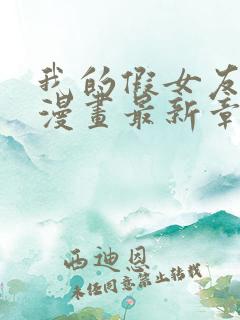 我的假女友
漫畫最新章
西迪恩
未经同意禁止转载